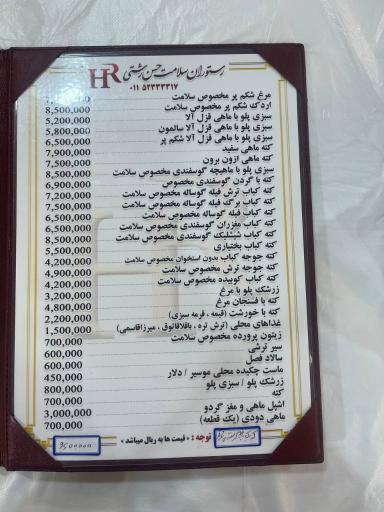 رستوران سلامت حسن رشتی
HR
۰۱۱ ۵۲۳۳۳۳۱۷
مرغ شکم پر مخصوص سلامت
اردک شکم پر مخصوص سلامت 8,500,000
سبزی پلو با ماهی قزل آلا 5,200,000
سبزی پلو با ماهی قزل آلا سالمون 5,800,000
سبزی پلو با ماهی قزل آلا شکم پر 6,500,000
کته ماهی سفید 7,900,000
کته ماهی اوزون برون 7,500,000
سبزی پلو با ماهیچه گوسفندی مخصوص سلامت 8,500,000
کته با گردن گوسفندی مخصوص 6,900,000
کته کباب ترش فیله گوساله مخصوص سلامت 7,200,000
کته کباب برگ فیله گوساله مخصوص سلامت 7,500,000
کته کباب فیله گوساله مخصوص سلامت 6,500,000
کته کباب مغزران گوسفندی مخصوص سلامت 6,500,000
کته کباب شیشلیک گوسفندی مخصوص سلامت 8,500,000
کته کباب بختیاری 5,500,000
کته جوجه کباب بدون استخوان مخصوص سلامت 4,200,000
کته جوجه ترش مخصوص سلامت 4,900,000
کته کباب کوبیده مخصوص سلامت 4,200,000
زرشک پلو با مرغ 3,200,000
کته با فسنجان مرغ 4,800,000
کته با خورشت (قیمه ، قرمه سبزی) 2,200,000
غذاهای محلی (ترش تره ، باقلاقاتوق ، میرزاقاسمی) 1,500,000
زیتون پرورده مخصوص سلامت 700,000
سیر ترشی 600,000
سالاد فصل 600,000
ماست چکیده محلی موسیر / دلار 450,000
زرشک پلو / سبزی پلو 800,000
کته 700,000
اشپل ماهی و مغز گردو 3,000,000
ماهی دودی (یک قطعه) 700,000
توجه : « قیمت ها به ریال میباشد »